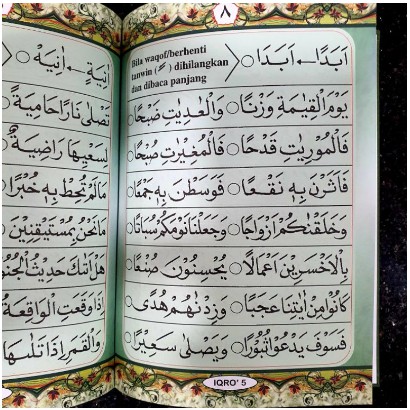 ٨
Bila waqof/berhenti
tanwin ( ـً ) dihilangkan
dan dibaca panjang
اَبَدًا ← اَبَدَا
يَوْمَ الْقِيٰمَةِ وَزْنًا ○ وَالْعٰدِيٰتِ ضَبْحًا
فَالْمُوْرِيٰتِ قَدْحًا ○ فَالْمُغِيْرٰتِ صُبْحًا
فَاَثَرْنَ بِهٖ نَقْعًا ○ فَوَسَطْنَ بِهٖ جَمْعًا
وَخَلَقْنٰكُمْ اَزْوَاجًا ○ وَجَعَلْنَا نَوْمَكُمْ سُبَاتًا
بِالْاَخْسَرِيْنَ اَعْمَالًا ○ يُحْسِنُوْنَ صُنْعًا
كَانُوْا مِنْ اٰيٰتِنَا عَجَبًا ○ وَزِدْنٰهُمْ هُدًى
فَسَوْفَ يَدْعُوْا ثُبُوْرًا ○ وَيَصْلٰى سَعِيْرًا
IQRO' 5
اٰنِيَةٍ ← اٰنِيَهْ ○
تَصْلٰى نَارًا حَامِيَةً
لِسَعْيِهَا رَاضِيَةٌ
مَا لَمْ تُحِطْ بِهٖ خُبْرًا
مَا نَحْنُ بِمُسْتَيْقِنِيْنَ
هَلْ اَتٰىكَ حَدِيْثُ الْجُنُوْ
اِذَا وَقَعَتِ الْوَاقِعَةُ
وَالْقَمَرِ اِذَا تَلٰىهَا